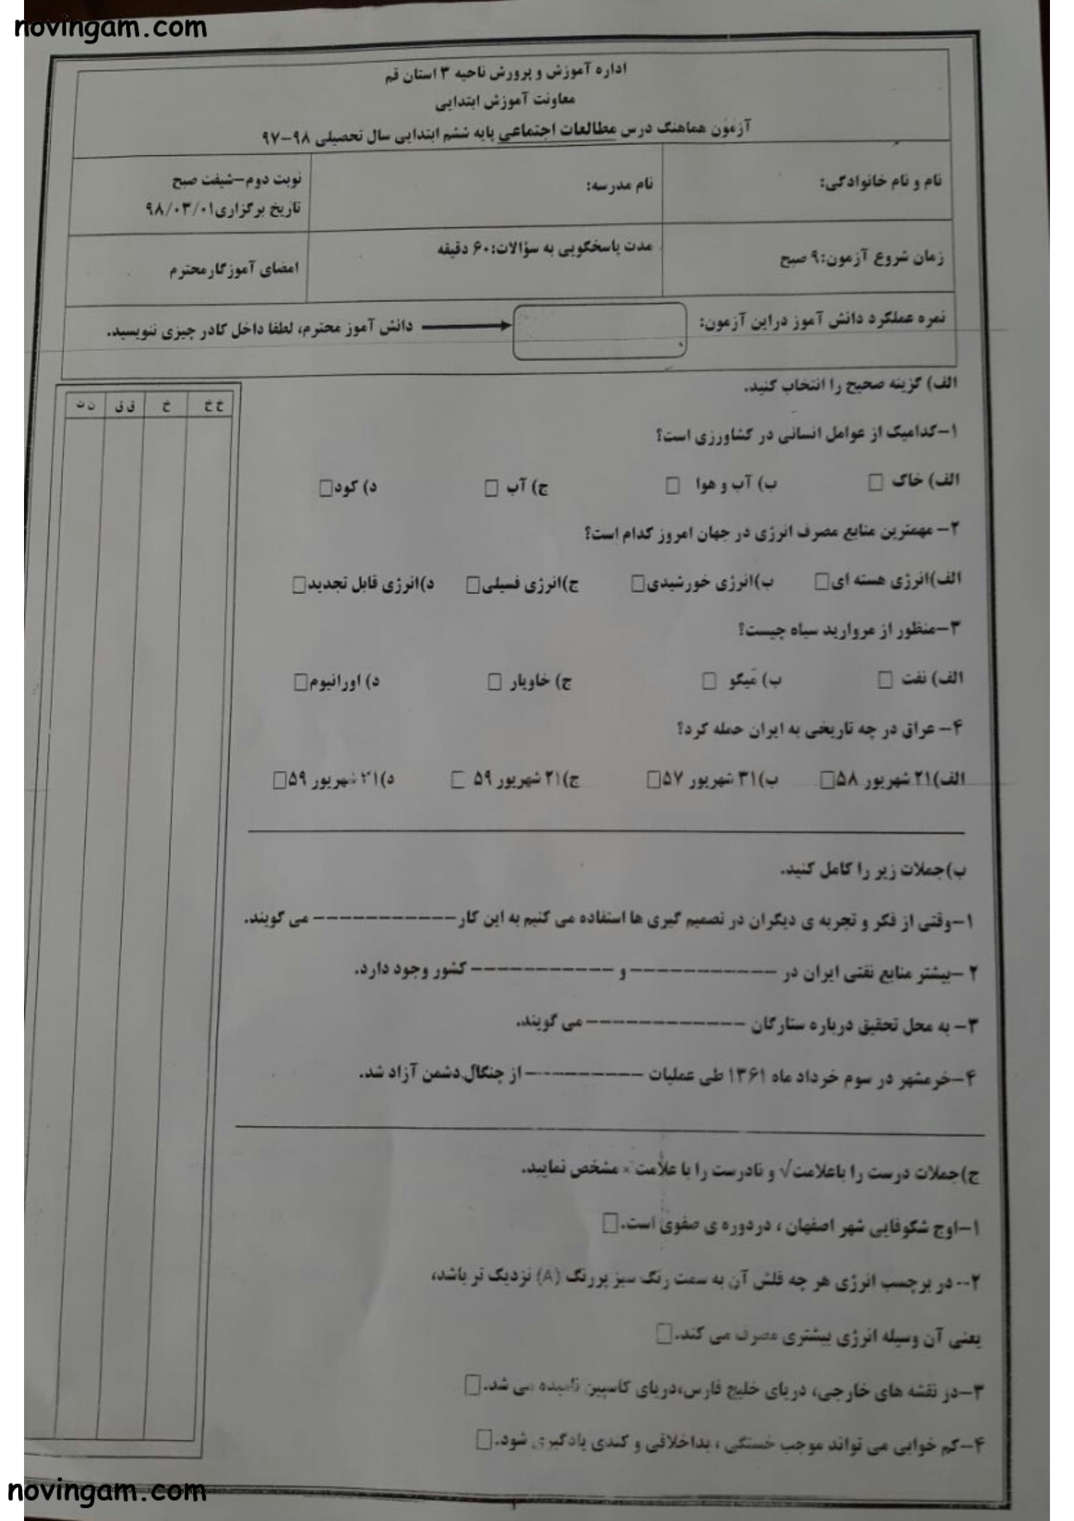 novingam.com
اداره آموزش و پرورش ناحیه ۳ استان قم
معاونت آموزش ابتدایی
آزمون هماهنگ درس مطالعات اجتماعی پایه ششم ابتدایی سال تحصیلی ۹۸-۹۷
نام و نام خانوادگی: نام مدرسه: نوبت دوم-شیفت صبح
تاریخ برگزاری۹۸/۰۳/۰۱
زمان شروع آزمون:۹ صبح مدت پاسخگویی به سؤالات:۶۰ دقیقه امضای آموزگارمحترم
نمره عملکرد دانش آموز دراین آزمون: دانش آموز محترم، لطفا داخل کادر چیزی ننویسید.
الف) گزینه صحیح را انتخاب کنید.
خ خ خ ق ق ن ت
۱-کدامیک از عوامل انسانی در کشاورزی است؟
الف) خاک □ ب) آب و هوا □ ج) آب □ د) کود□
۲- مهمترین منابع مصرف انرژی در جهان امروز کدام است؟
الف)انرژی هسته ای□ ب)انرژی خورشیدی□ ج)انرژی فسیلی□ د)انرژی قابل تجدید□
۳-منظور از مروارید سیاه چیست؟
الف) نفت □ ب) میگو □ ج) خاویار □ د) اورانیوم□
۴- عراق در چه تاریخی به ایران حمله کرد؟
الف)۲۱ شهریور ۵۸□ ب)۳۱ شهریور ۵۷□ ج)۲۱ شهریور ۵۹ □ د) شهریور ۵۹□
ب)جملات زیر را کامل کنید.
۱-وقتی از فکر و تجربه ی دیگران در تصمیم گیری ها استفاده می کنیم به این کار----------- می گویند.
۲ -بیشتر منابع نفتی ایران در ----------- و ----------- کشور وجود دارد.
۳- به محل تحقیق درباره ستارگان ------------ می گویند.
۴-خرمشهر در سوم خرداد ماه ۱۳۶۱ طی عملیات --------- از چنگال دشمن آزاد شد.
ج)جملات درست را باعلامت√ و نادرست را با علامت × مشخص نمایید.
۱-اوج شکوفایی شهر اصفهان ، دردوره ی صفوی است.□
۲-- در برچسب انرژی هر چه فلش آن به سمت رنگ سبز پررنگ (A) نزدیک تر باشد،
یعنی آن وسیله انرژی بیشتری مصرف می کند.□
۳-در نقشه های خارجی، دریای خلیج فارس،دریای کاسپین نامیده می شد.□
۴-کم خوابی می تواند موجب خستگی ، بداخلاقی و کندی یادگیری شود.□
novingam.com
۱